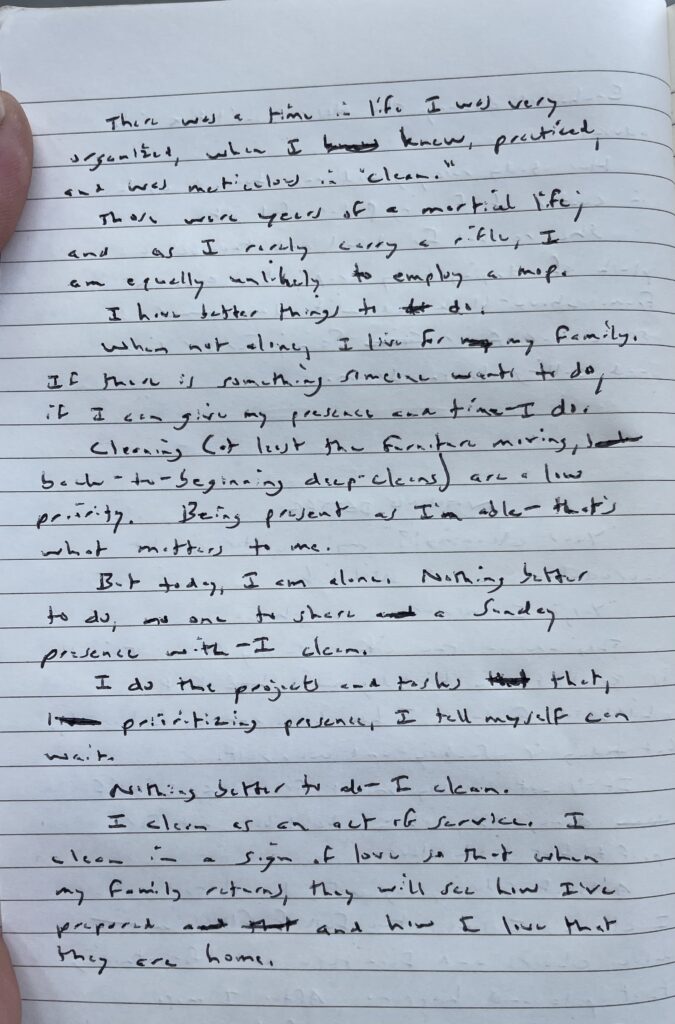 There was a time in life I was very
organized, when I knew, practiced,
and was meticulous in "clean."
Those were years of a martial life,
and as I rarely carry a rifle, I
am equally unlikely to employ a mop.
I have better things to do.
When not alone, I live for my family.
If there is something someone wants to do,
if I can give my presence and time-I do.
Cleaning (at least the furniture moving,
back-to-beginning deep-cleans) are a low
priority. Being present as I'm able-that's
what matters to me.
But today, I am alone. Nothing better
to do, no one to share a Sunday
presence with-I clean.
I do the projects and tasks that,
prioritizing presence, I tell myself can
wait.
Nothing better to do-I clean.
I clean as an act of service. I
clean in a sign of love so that when
my family returns, they will see how I've
prepared and how I love that
they are home.